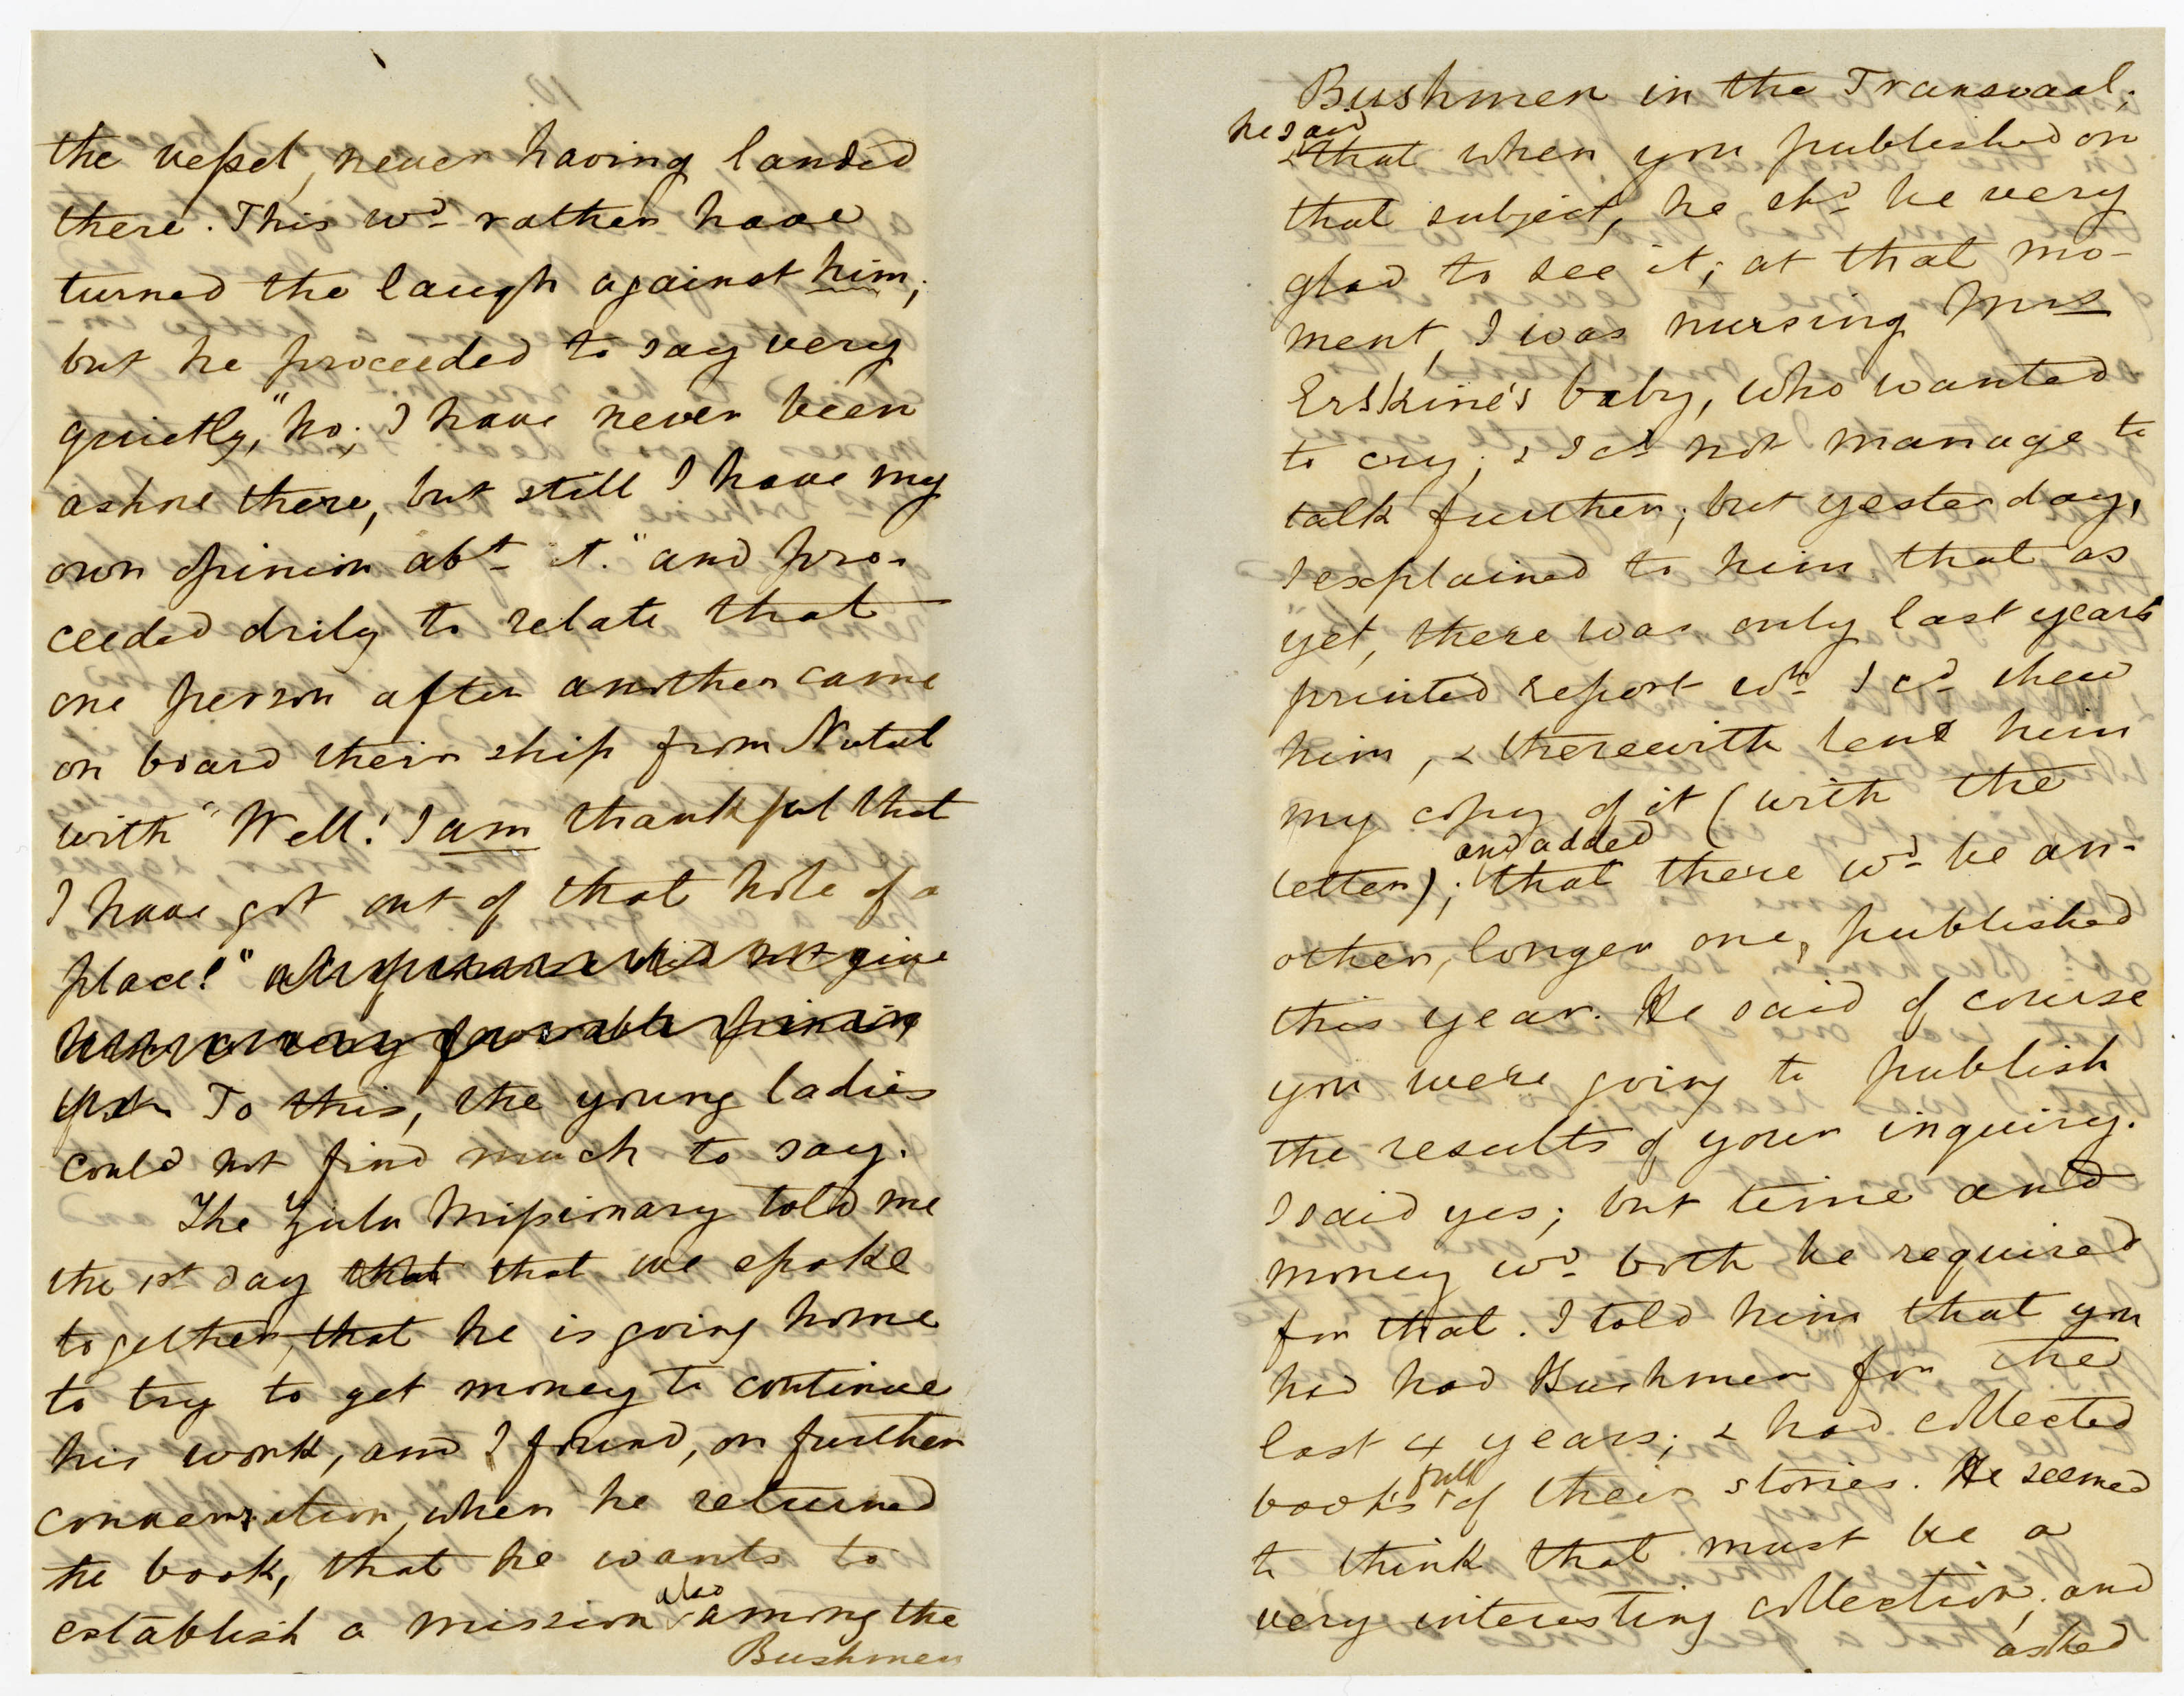 the vessel, never having landed
there. This wd. rather have
turned the laugh against him;
but he proceeded to say very
quietly, "no; I have never been
ashore there, but still I have my
own opinion abt. it." and pro-
ceeded drily to relate that
one person after another came
on board their ship from Natal
with "Well! I am thankful that
I have got out of that hole of a
place!" did not give
very favorable opinion
To this, the young ladies
could not find much to say.
The Zulu Missionary told me
the 1st day that that we spoke
together, that he is going home
to try to get money to continue
his work, and I found, on further
conversation, when he returned
the book, that he wants to
establish a mission also among the
Bushmen
Bushmen in the Transvaal;
he said
that when you published on
that subject, he shd. be very
glad to see it; at that mo-
ment, I was nursing Mrs
Erskine's baby, who wanted
to cry; & I cd. not manage to
talk further; but yesterday,
I explained to him that as
yet, there was only last years
printed report wh. I cd. shew
him, & therewith lent him
my copy of it (with the
letter); and added that there wd. be an-
other, longer one, published
this year. He said of course
you were going to publish
the results of your inquiry.
I said yes; but time and
money wd. both be required
for that. I told him that you
had had Bushmen for the
last 4 years; & had collected
books full of their stories. He seemed
to think that must be a
very interesting collection; and
asked